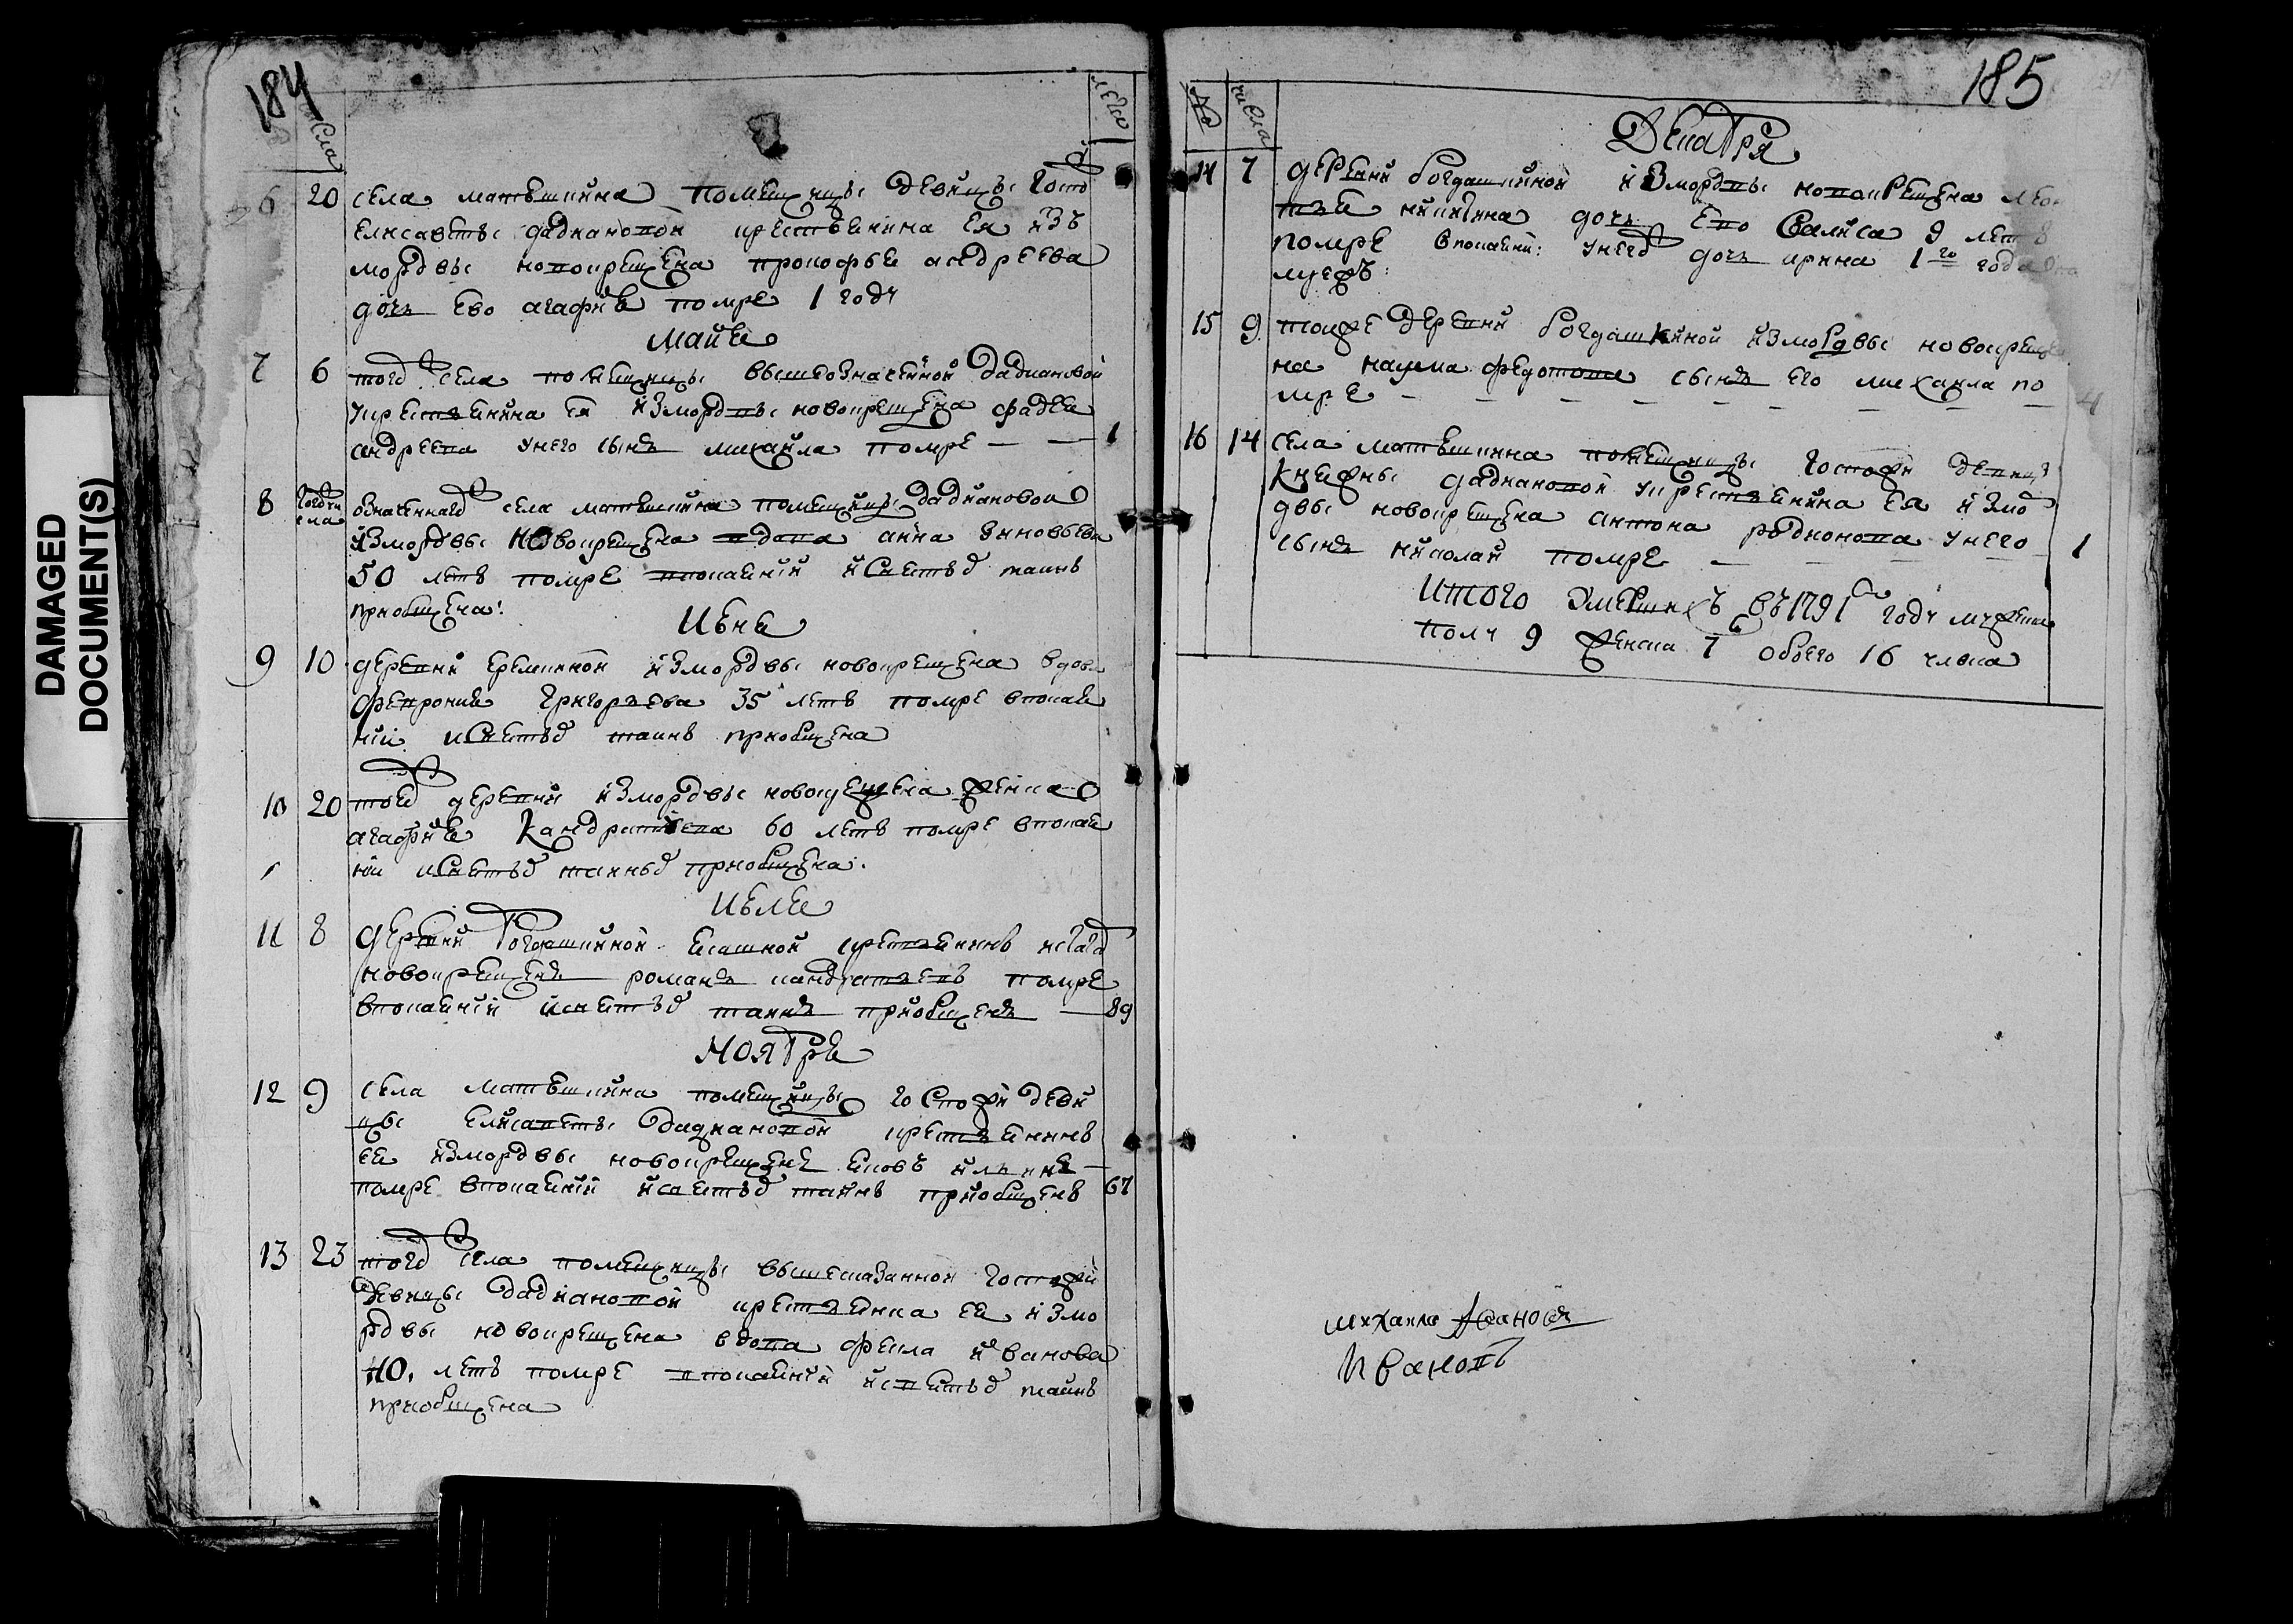 DAMAGED
DOCUMENT(S)
184
числа
лета
6 20 села матвшкина помещицы девицы госпо
елисаветы даднановой крестьянина ея изъ
мордвы новокрещена прокофья андреева
дочь ево агафия помре 1 году
майя
7 6 того села помещицы вышеозначенной даднановой
у крестьянина ея измордвы новокрещена фадея
андреева унего сынъ михайла помре — — 1
8 того чи
сла означенного села матвшкина помещицы даднановой
измордвы новокрещена вдова анна зиновьева
50 летъ помре впокаянии исвятыхъ таинъ
приобщена:
Июня
9 10 деревни еремкиной измордвы новокрещена вдова
феврония григорьева 35 летъ помре впокая
нии исвятыхъ таинъ приобщена
10 20 той деревни измордвы новокрещена женка
агафия кандратьева 60 летъ помре впокая
нии исвятыхъ таинъ приобщена.
Июля
11 8 деревни богдашкиной ясашной крестьянинъ
новокрещенъ романъ кандратьевъ помре
впокаянии исвятыхъ таинъ приобщенъ — 89
Ноября
12 9 села матвшкина помещицы госпожи деви
цы елисаветы даднановой крестьянинъ
ея измордвы новокрещенъ яковъ ильинъ —
помре впокаянии исвятыхъ таинъ приобщенъ 67
13 23 того села помещицы вышесказанной госпожи
девицы даднановой крестьянка ея измо
рдвы новокрещена вдова фекла иванова
40. летъ помре впокаянии исвятыхъ таинъ
приобщена
185
№
числа
Декабря
14 7 деревни богдашкиной измордвы новокрещена
никитина дочь ево 9 летъ
помре впокаянии: унего дочь ирина 1го года
15 9 тояже деревни богдашкиной измордвы новокреще
на наума федотова сынъ его михайла по
мре — — — — — — — — 4
16 14 села матвшкина помещицы госпожи девицы
княжны даднановой укрестьянина ея измо
рдвы новокрещена антона родионова унего
сынъ николай помре — — — — 1
Итого умершихъ въ1791 году мужеска
полу 9 женска 7 обоего 16 члвка
михаило
Ивановъ